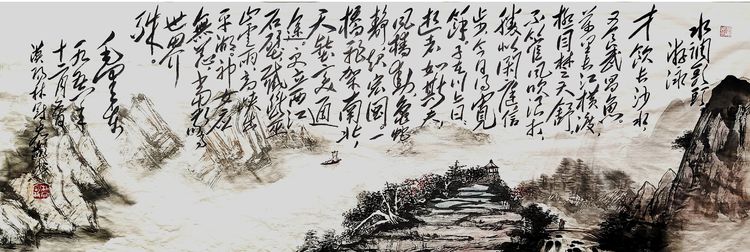 水调歌头
游泳
才饮长沙水，
又食武昌鱼。
萬里长江横渡，
极目楚天舒。
不管风吹浪打，
胜似闲庭信
步，今日得宽
馀。子在川上曰：
逝者如斯夫！
风樯动，龟蛇
静，起宏图。一
桥飞架南北，
天堑变通
途。更立西江
石壁，截断巫
山云雨，高峡出
平湖。神女应
無恙，当惊
世界
殊。
毛泽东
一九五六年
十二月